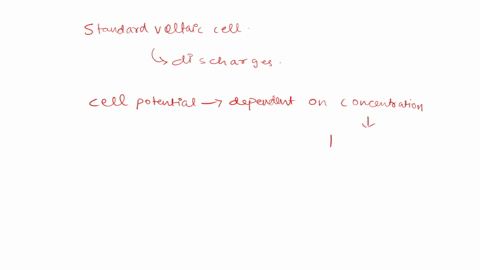 Standard voltaic cell.
↳ discharges.
cell potential → dependent on concentration
↓